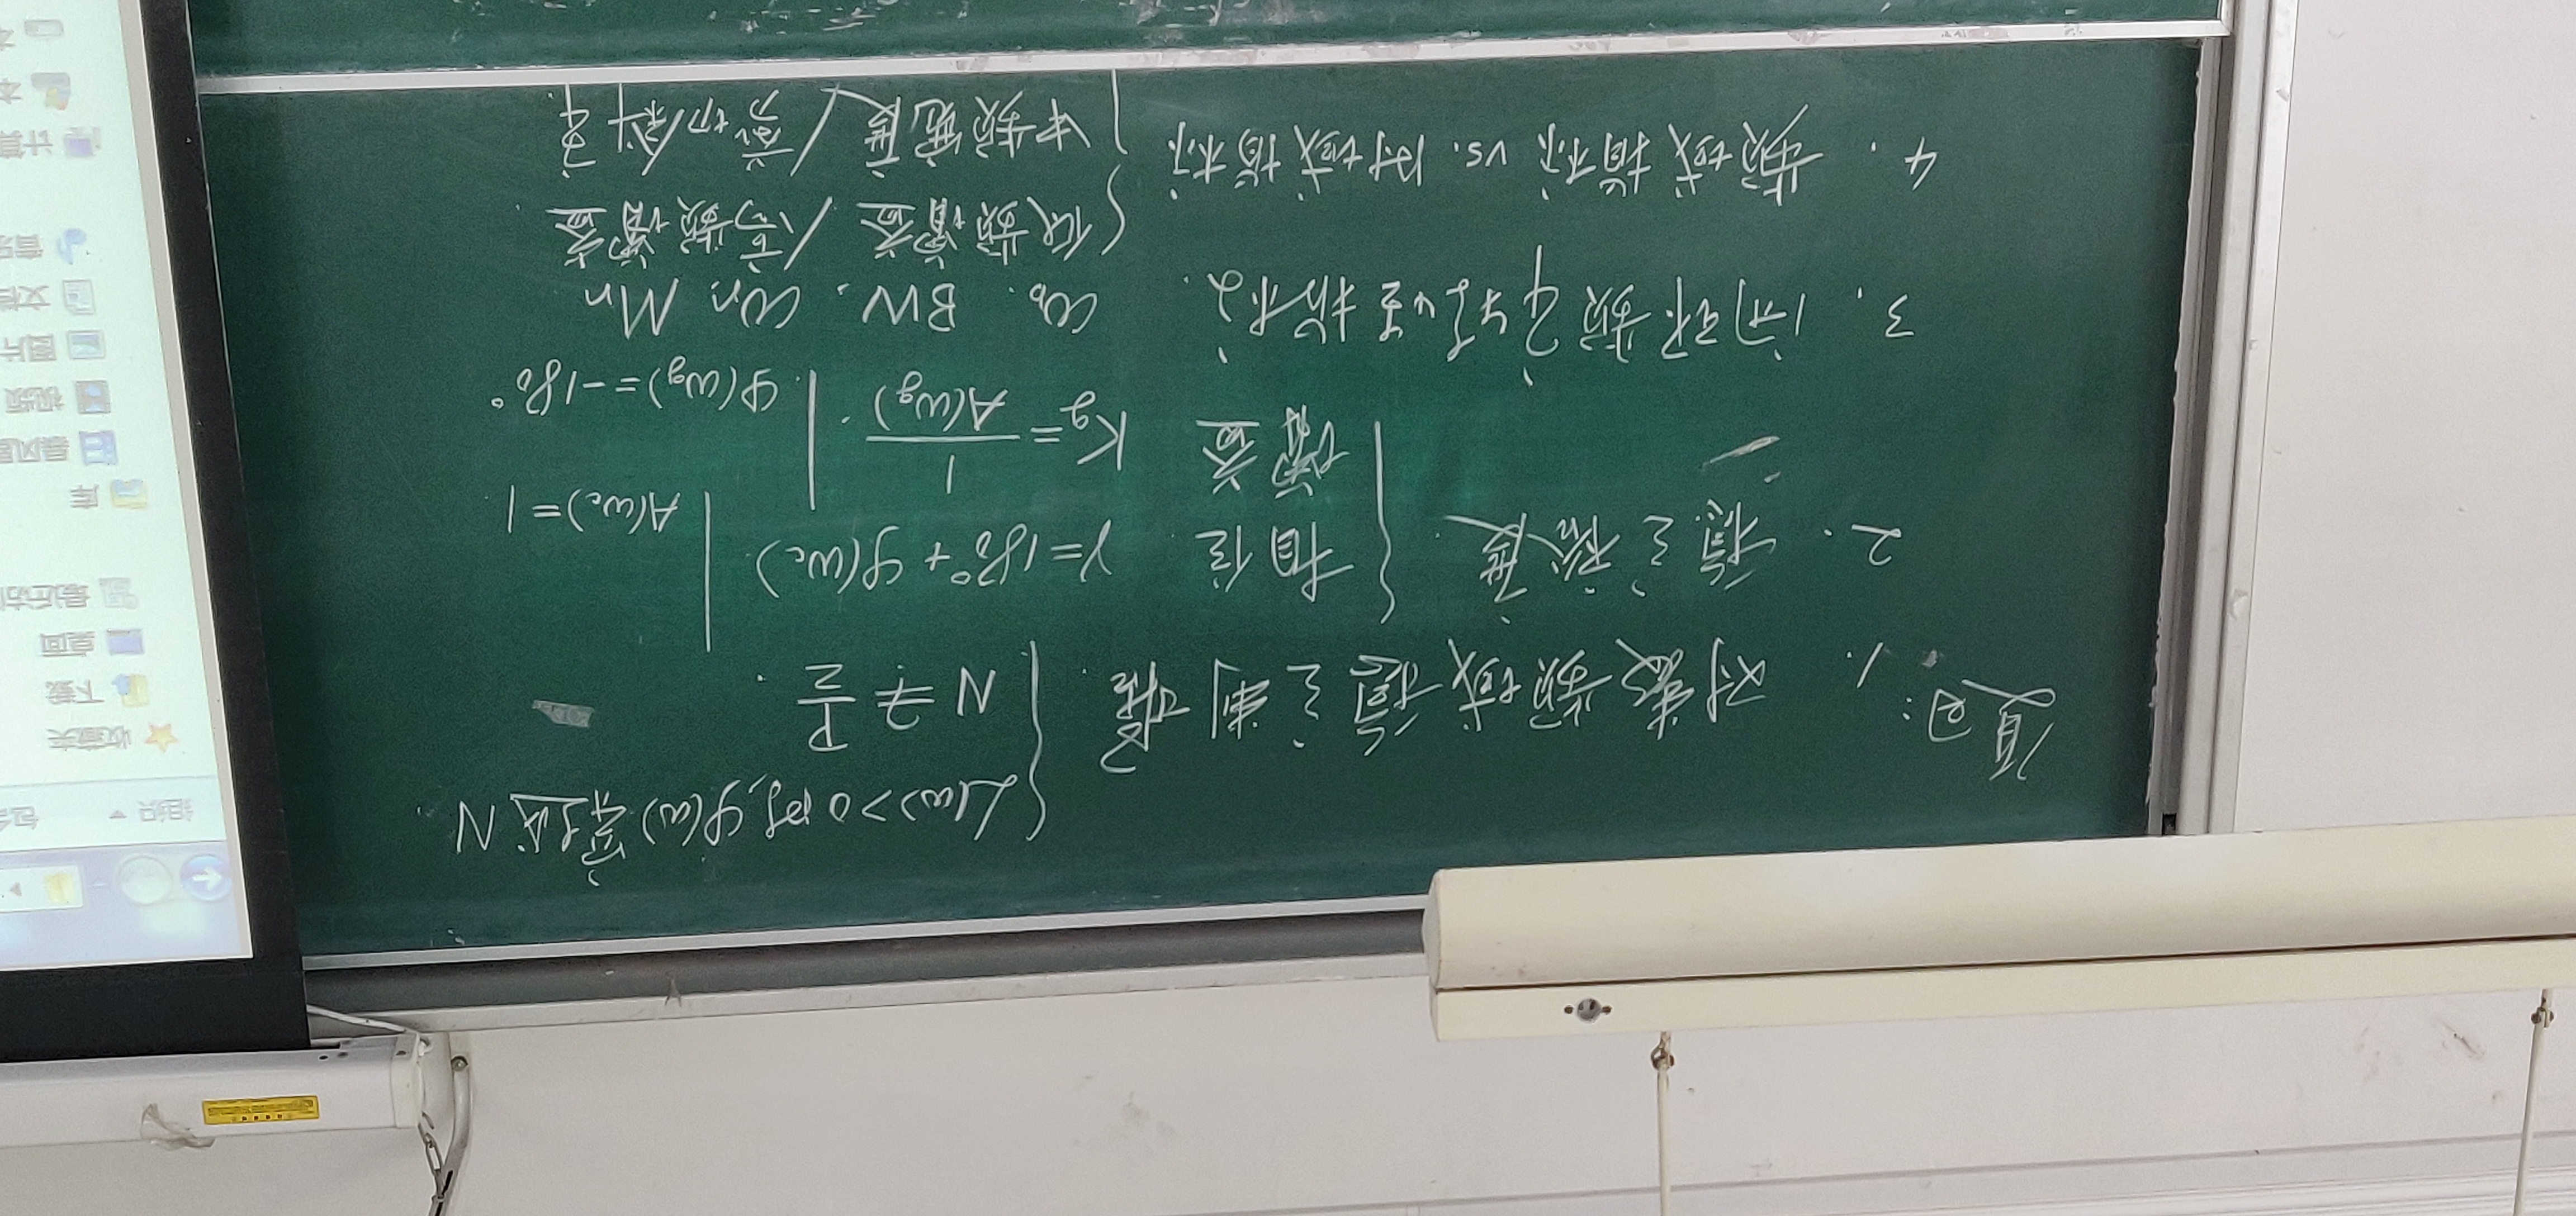 复习:
1. 对数频域稳定判据. { L(ω)>0时, φ(ω)穿越N.
N ≟ P/2.
2. 稳定裕度. { 相位 γ=180°+φ(ωc) | A(ωc)=1
增益 Kg=1/A(ωg). | φ(ωg)=-180°
3. 闭环频率特性指标. ωb、BW、ωr、Mr
4. 频域指标 vs. 时域指标 { 低频增益/高频增益.
中频宽度/剪切斜率.
组织
收藏夹
下载
桌面
最近访
库
视频
图片
文档
音乐
计算